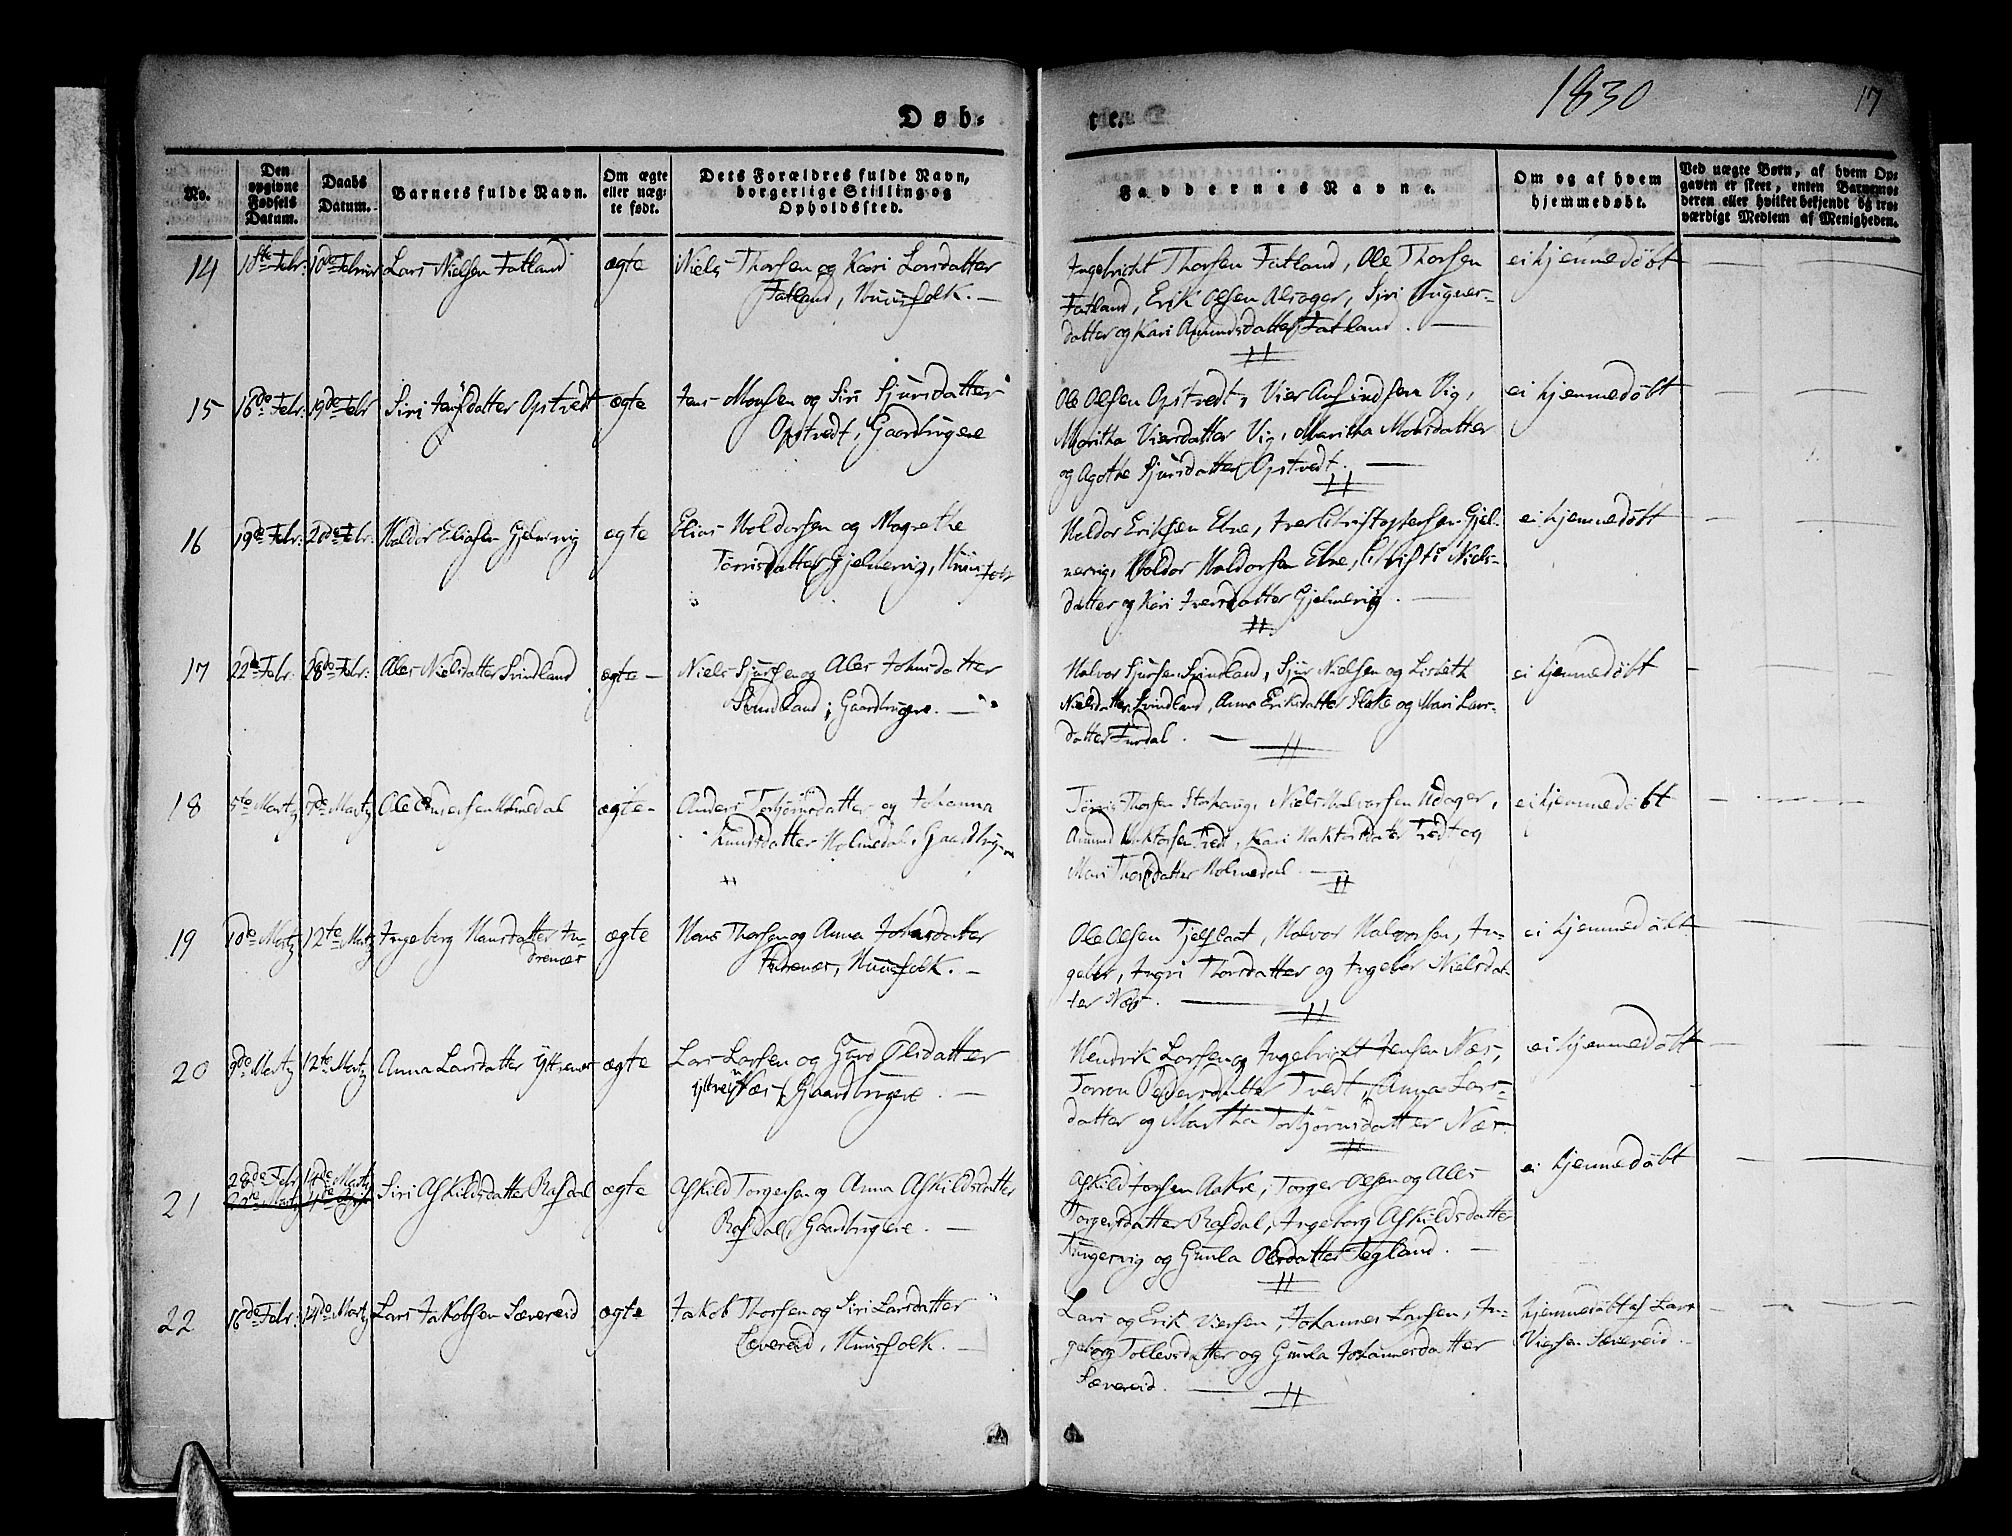 1830
17
Døb-
te.
No.
Den opgivne Fødsels Datum.
Daabs Datum.
Barnets fulde Navn.
Om ægte eller uæg-te født.
Dets Forældres fulde Navn, borgerlige Stilling og Opholdssted.
Faddernes Navne.
Om og af hvem hjemmedøbt.
Ved uægte Børn, af hvem Op-gaven er skeet, enten Barnemo-deren eller hvilket bekjendt og tro-værdigt Medlem af Menigheden.
14 Febr: Lars Nielsen Fatland ægte Niels Thorsen og Kari Larsdatter
Fatland, Huusfolk. —
Ingebricht Thorsen Fatland, Ole Thorsen ei hjemmedøbt
Fatland, Erik Olsen Alsager, Siri
datter og Kari Amundsdatter Fatland. —
15 18de Febr: 19de Febr Siri Jensdatter Opstvedt ægte Jens Monsen og Siri Sjursdatter
Opstvedt, Gaardbrugere
Ole Olsen Opstvedt, Vier Vig, ei hjemmedøbt
Maritha Viersdatter Vig, Maritha Monsdatter
og Agothe Sjursdatter Opstvedt. —
16 19de Febr: 20de Febr: Haldor Eliasen Gjelmervig ægte Elias Haldorsen og Magrethe
Tørrisdatter Gjelmervig, Huusfolk
Haldor Eriksen Etne, Iver Christophersen Gjel- ei hjemmedøbt
mervig, Haldor Haldorsen Etne, Christi Niels-
datter og Kari Iversdatter Gjelmervig. —
17 22de Febr: 28de Febr: Ales Nielsdatter Svindland ægte — Niels Sjursen og Ales Johnsdatter
Svindland, Gaardbrugere. —
Halvor Sjursen Svindland, Sjur Nielsen og Lisbeth ei hjemmedøbt
Nielsdatter Svindland, Anna Eriksdatter og Mari Lars-
datter Furdal. —
18 5te Martz 7de Martz Ole Andersen Holmedal ægte — Anders Torbjørnsdatter og Johanna
Knudsdatter Holmedal, Gaardbrugere
Tørris Thorsen Storhaug, Niels Halvorsen Udager, ei hjemmedøbt
Amund Haktorsen Tvedt, Kari Haktorsdatter Tvedt og
Mari Thorsdatter Holmedal. —
19 10de Martz 12te Martz Ingeborg Hansdatter In- ægte Hans Thorsen og Anna Johnsdatter
drenæs
Indrenæs, Huusfolk. —
Ole Olsen Halvor Halvorsen, In- ei hjemmedøbt
gebr, Ingri Thorsdatter og Ingebor Nielsdat-
ter Næs. —
20 9de Martz 12te Martz Anna Larsdatter Yttrenæs ægte Lars Larsen og Olsdatter
Næs, Gaardbrugere. —
Hendrik Larsen og Ingebricht Jensen Næs, ei hjemmedøbt
Torron Pedersdatter Tvedt, Anna Lars-
datter og Martha Torbjørnsdatter Næs.
21 28de Febr 14de Martz Siri Askildsdatter Rafdal ægte Askild Torgersen og Anna Askildsdatter
Rafdal, Gaardbrugere. —
Askild Aakre, Torger Olsen og Ales ei hjemmedøbt
Torgersdatter Rafdal, Ingeborg Askildsdatter
og Gunla Olsdatter Tegland. —
22 16de Febr: 14de Martz Lars Jakobsen Sævereid ægte Jakob Thorsen og Siri Larsdatter
Sævereid, Huusfolk. —
Lars og Erik Viersen, Johannes Larsen, In- hjemmedøbt af Lars
geborg Tollevsdatter og Gunla Johannesdatter Viersen Sævereid.
Sævereid. —